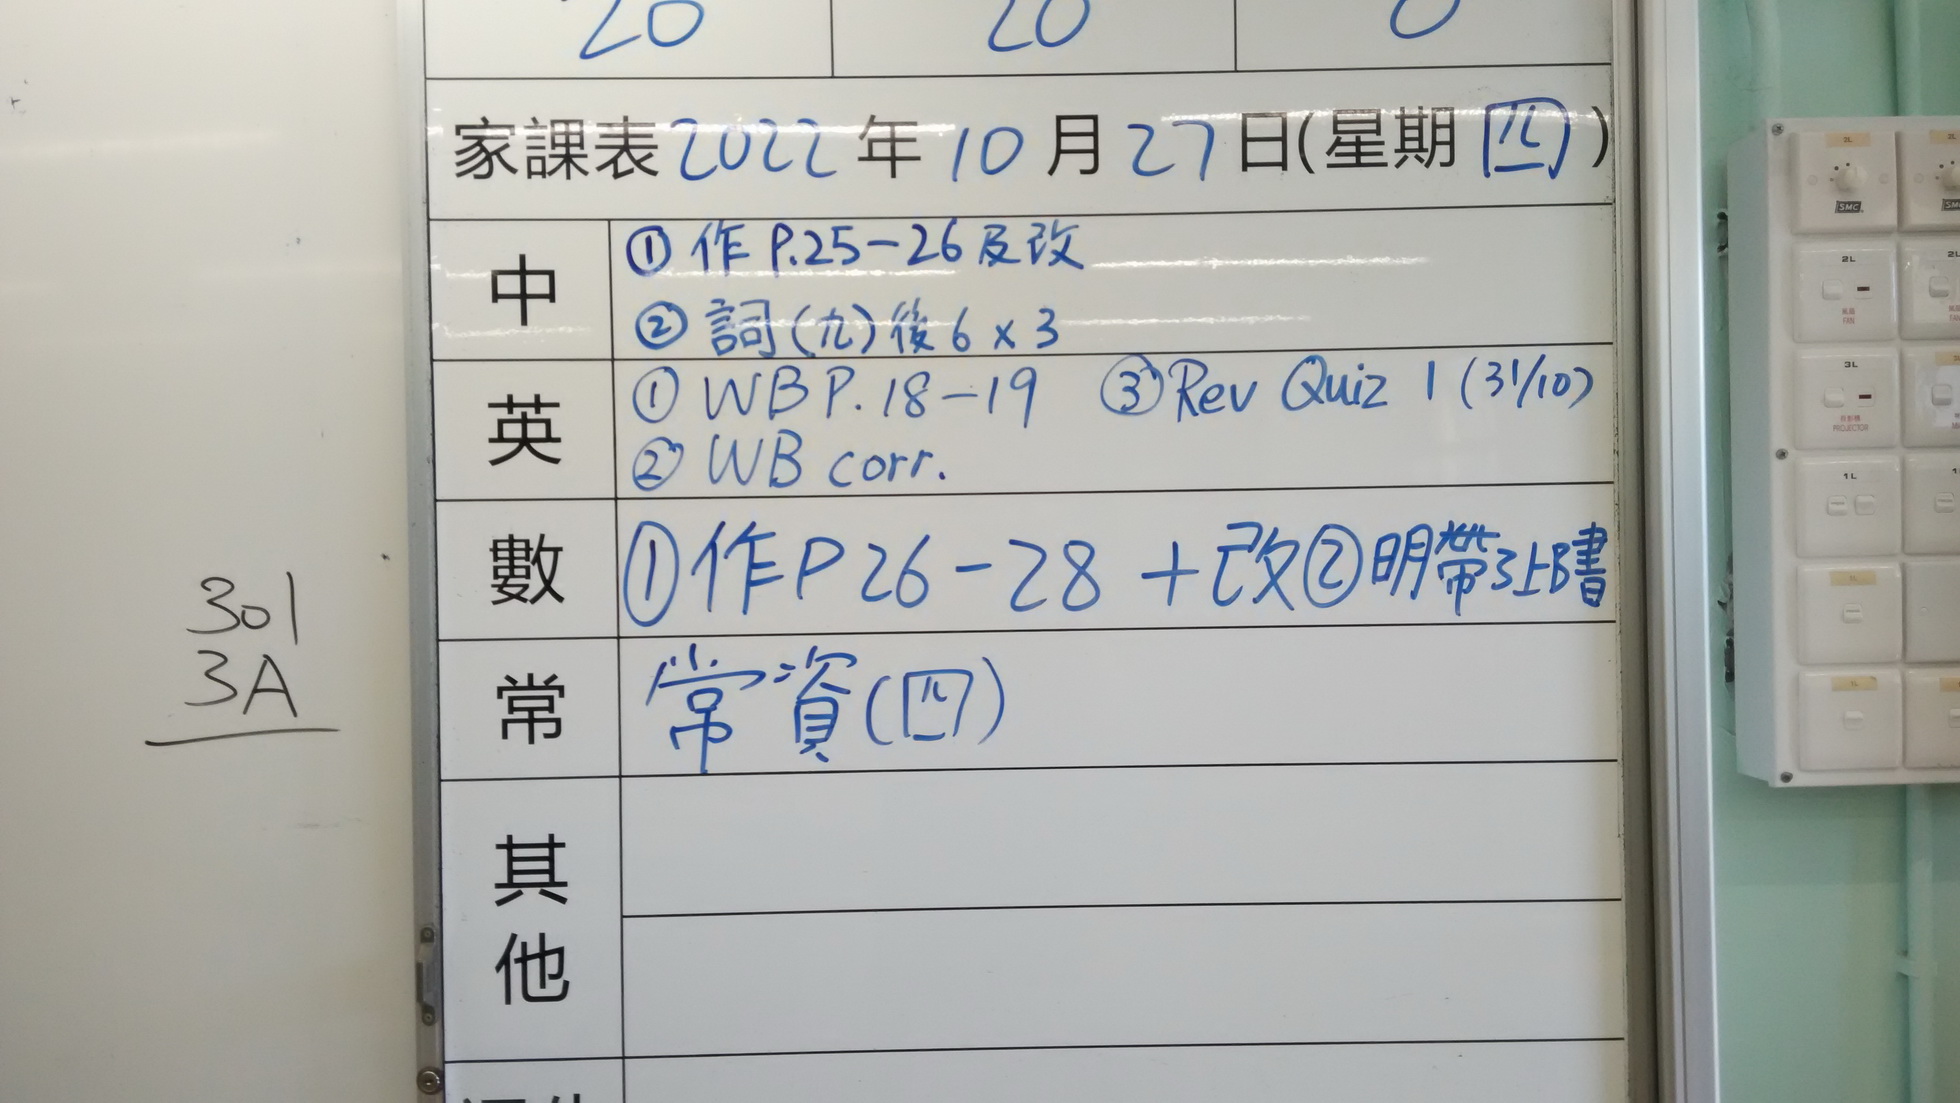 20 20 0
家課表 2022 年 10 月 27 日(星期 四)
中
① 作 P.25-26 及改
② 詞(九)後 6 x 3
英
① WB P.18-19 ③ Rev Quiz 1 (31/10)
② WB corr.
數
① 作 P 26-28 + 改 ② 明帶3上B書
常
常資(四)
其他
301
3A
2L
SMC
2L
FAN
3L
PROJECTOR
1L